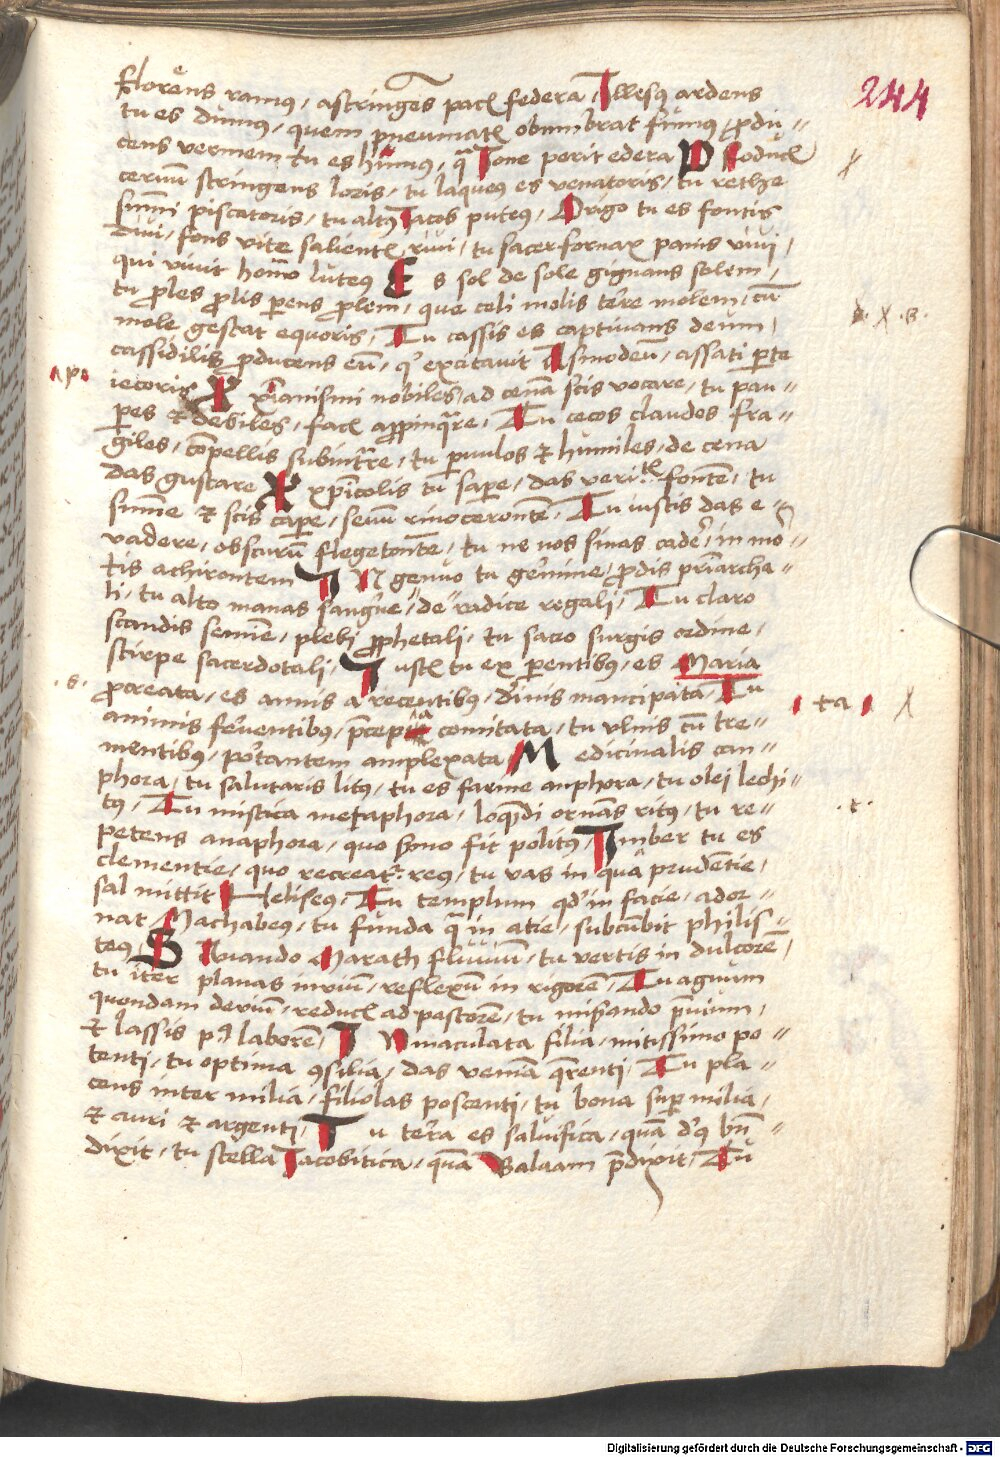 244
florens ramus, astringens pacis federa, Illesus ardens
tu es dumus, quem pneumatis obumbrat fumus, produ-
cens vermem tu es humus, qua Ione perit edera Producis
cervum stringens loris, tu laqueus es venatoris, tu rethe
summi piscatoris, tu altus Iacob puteus, Origo tu es fontis
divi, fons vite salientis rivi, tu sacer fornax panis vivi,
qui vivit homo luteus Es sol de sole gignans solem,
tu proles prolis parens prolem, que celi molis terre molem, cum
mole gestat equoris, Tu cassis es captivans deum,
cassidilis producens eum, quo excitavit Asmodeum, assati parte
iecoris X xpianisimi nobiles, ad cenam scis vocare, tu pau-
peres et debiles, facis appropinquare, Tu cecos claudos fra-
giles, compellis subintrare, tu parvulos et humiles, de cena
das gustare X xpicolis tu sapere, das veritatis fontem, tu
summe et scis capere, sevum rinocerontem, Tu iustis das e-
vadere, obscurum flegetontem, tu ne nos sinas cadere, in mor-
tis achirontem IN genuo tu germine, prodis patriarcha-
li, tu alto manas sanguine, de radice regali, Tu claro
scandis semine, plebi prophetali, tu sacro surgis ordine,
stirpe sacerdotali, Iustis tu ex parentibus, es Maria
.s. procreata, es annis a recentibus, divinis mancipata, Tu
animis ferventibus, comitata, tu ulnis cum tre- ta
mentibus, portantem amplexata, Medicinalis can-
phora, tu salutaris litus, tu es farine anphora, tu olei lechi-
tus, Tu mistica metaphora, loquendi ornans ritus, tu re- .t.
petens anaphora, quo sermo fit politus, Imber tu es
clementie, quo recreatur reus, tu vas in qua prudentie,
sal mittit Heliseus, Tu templum quod in facie, ador-
nat Machabeus, tu funda qua in acie, subcumbit philis-
teus, S Quando Marath fluvium, tu vertis in dulcorem,
tu iter planas invium, reflexum in rigorem, Tu agnum
quondam devium, reducis ad pastorem, tu
et lassis post laborem, IN maculata filia, mitissimo po-
tenti, tu optima consilia, das veniam querenti, Tu pla-
cens inter milia, filiolas poscenti, tu bona super milia,
et auri et argenti, Tu terra es salvifica, quam deus bene-
dixit, tu stella Iacobitica, quam Balaam predixit, Tu
Digitalisierung gefördert durch die Deutsche Forschungsgemeinschaft - DFG